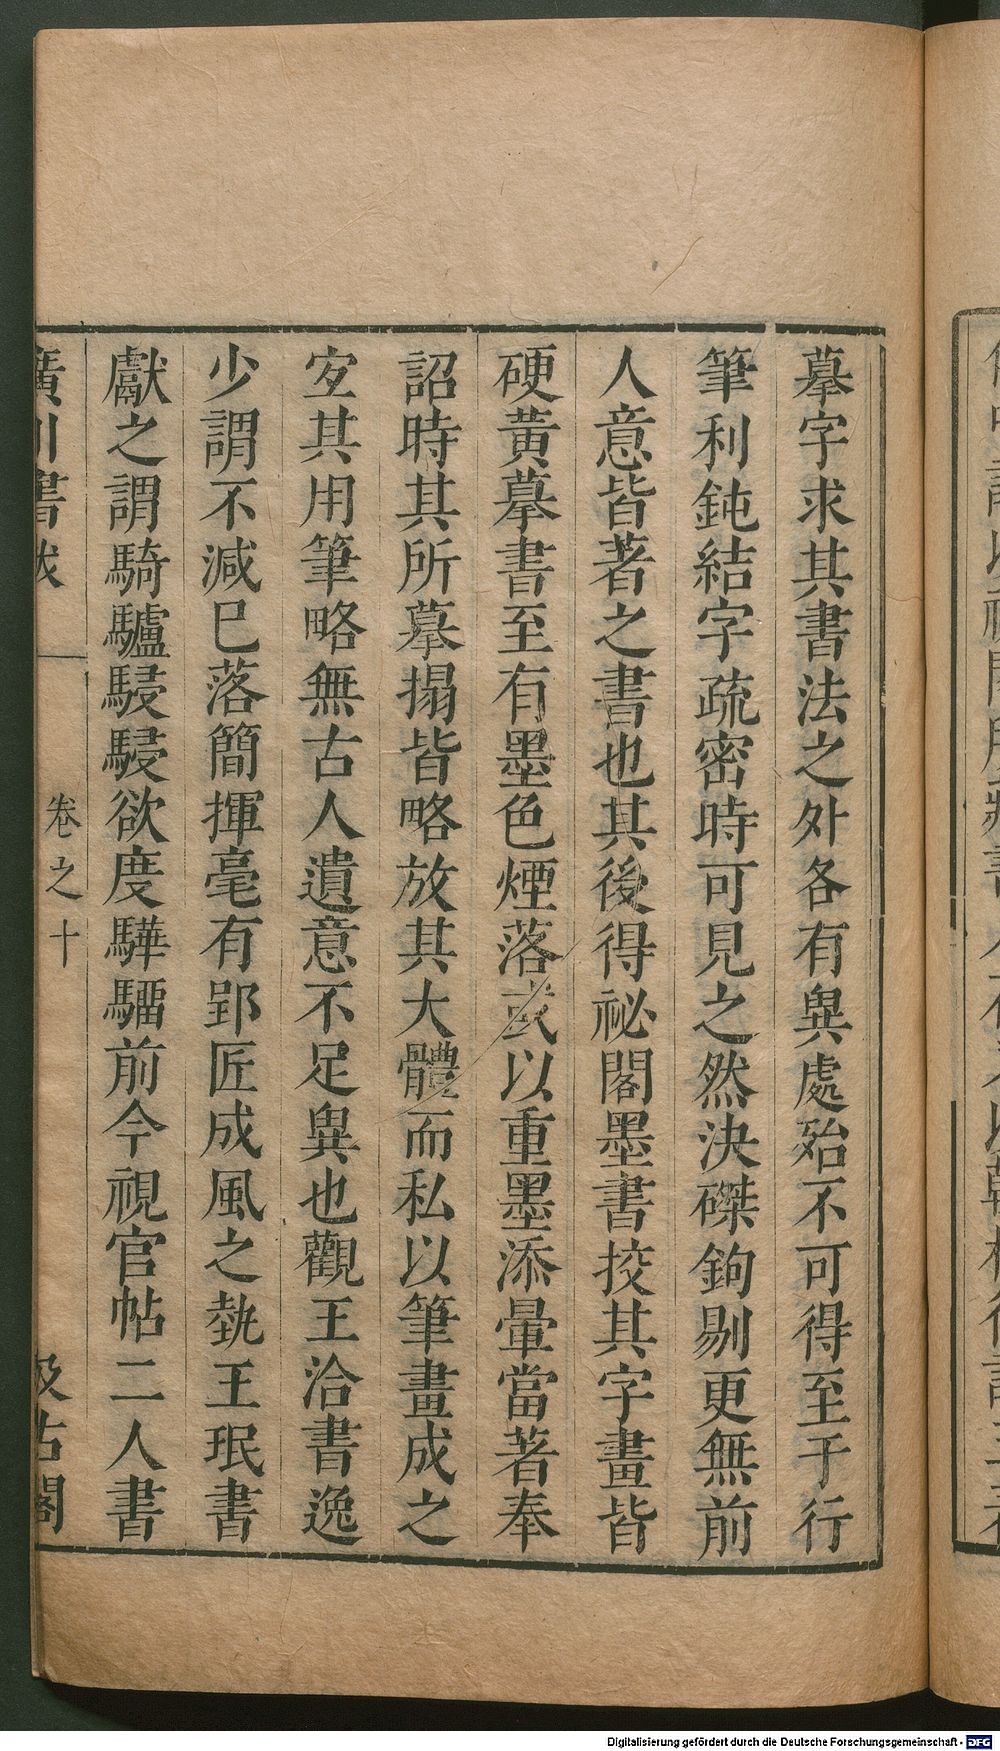 摹字求其書法之外各有異處殆不可得至于行
筆利鈍結字疏密時可見之然決磔鉤剔更無前
人意皆著之書也其後得祕閣墨書挍其字畫皆
硬黃摹書至有墨色煙落或以重墨添暈當著奉
詔時其所摹搨皆略放其大體而私以筆畫成之
宐其用筆略無古人遺意不足異也觀王洽書逸
少謂不減巳落簡揮毫有郢匠成風之埶王珉書
獻之謂騎驢駸駸欲度驊騮前今視官帖二人書
廣川書跋
卷之十
汲古閣
Digitalisierung gefördert durch die Deutsche Forschungsgemeinschaft - DFG